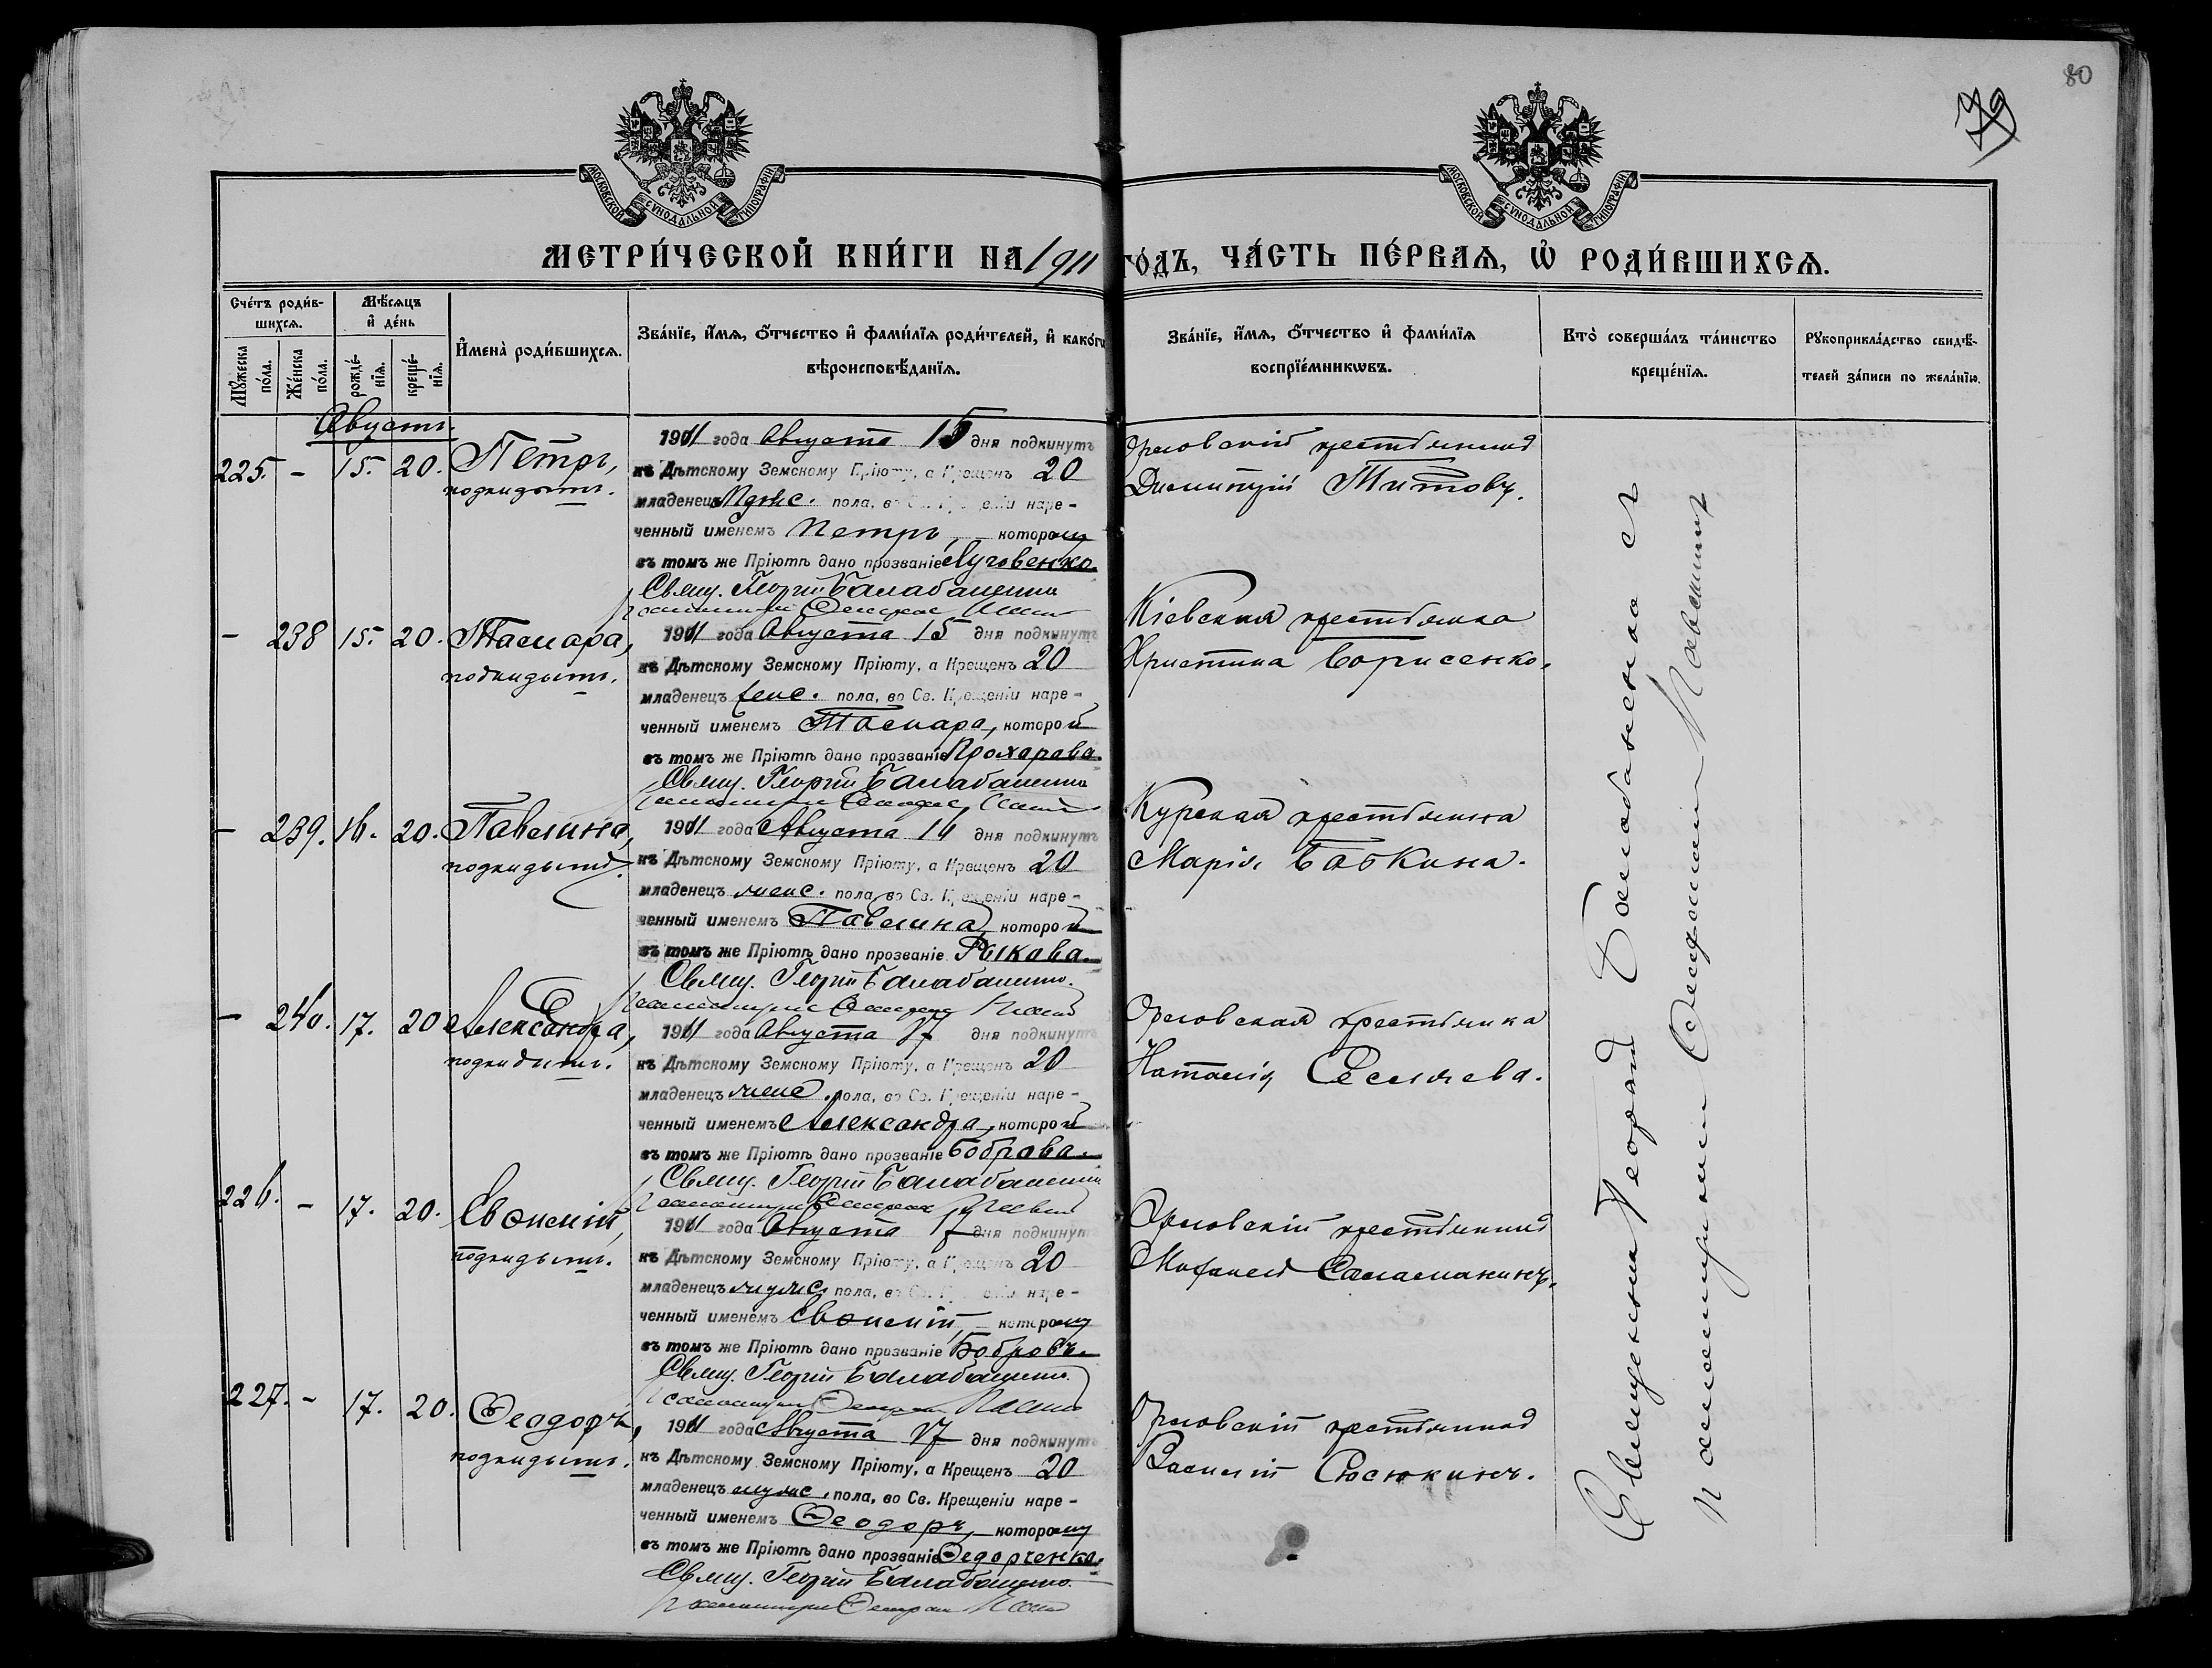 80
79
МОСКОВСКОЙ СѴНОДАЛЬНОЙ ТИПОГРАФІИ
МОСКОВСКОЙ СѴНОДАЛЬНОЙ ТИПОГРАФІИ
МЕТРИ́ЧЕСКОЙ КНИ́ГИ НА 1911 ГО́ДЪ, ЧА́СТЬ ПЕ́РВАѦ, Ѡ҆ РОДИ́ВШИХСѦ.
Сче́тъ роди́в-
шихсѧ.
Мꙋ́жеска по́ла.
Же́нска по́ла.
Мѣ́сѧцъ
и҆ де́нь
рожде́-
нїѧ.
креще́-
нїѧ.
И҆мена̀ роди́вшихсѧ.
Зва́нїе, и҆́мѧ, ѻ҆́тчество и҆ фами́лїѧ роди́телей, и҆ како́гѡ
вѣроисповѣ́данїѧ.
Зва́нїе, и҆́мѧ, ѻ҆́тчество и҆ фами́лїѧ
воспрїе́мникѡвъ.
Кто̀ соверша́лъ та́инство
креще́нїѧ.
Рꙋкоприкла́дство свидѣ́-
телей за́писи по жела́нїю.
Августъ.
225. – 15. 20. Петръ,
подкидышъ.
1911 года Августа 15 дня подкинутъ
къ Дѣтскому Земскому Пріюту, а Крещенъ 20
младенецъ Муж. пола, во Св. Крещеніи наре-
ченный именемъ Петръ, которому
въ томъ же Пріютѣ дано прозваніе Луговенко.
Свящ. Георгій Балабаненко
Орловскій крестьянинъ
Димитрій Титовъ.
– 238 15. 20. Тамара,
подкидышъ.
1911 года Августа 15 дня подкинутъ
къ Дѣтскому Земскому Пріюту, а Крещенъ 20
младенецъ жен. пола, во Св. Крещеніи наре-
ченный именемъ Тамара, которой
въ томъ же Пріютѣ дано прозваніе Прохарова.
Свящ. Георгій Балабаненко
Кіевская крестьянка
Христина Борисенко.
– 239. 16. 20. Павлина,
подкидышъ.
1911 года Августа 16 дня подкинутъ
къ Дѣтскому Земскому Пріюту, а Крещенъ 20
младенецъ женс. пола, во Св. Крещеніи наре-
ченный именемъ Павлина, которой
въ томъ же Пріютѣ дано прозваніе Рыкова.
Свящ. Георгій Балабаненко.
Курская крестьянка
Марія Бабкина.
– 240. 17. 20 Александра,
подкидышъ.
1911 года Августа 17 дня подкинутъ
къ Дѣтскому Земскому Пріюту, а Крещенъ 20
младенецъ женс. пола, во Св. Крещеніи наре-
ченный именемъ Александра, которой
въ томъ же Пріютѣ дано прозваніе Боброва.
Свящ. Георгій Балабаненко
Орловская крестьянка
Наталія
226. – 17. 20. Евѳимій,
подкидышъ.
1911 года Августа 17 дня подкинутъ
къ Дѣтскому Земскому Пріюту, а Крещенъ 20
младенецъ мужс. пола, во Св. Крещеніи наре-
ченный именемъ Евѳимій, которому
въ томъ же Пріютѣ дано прозваніе Бобровъ.
Свящ. Георгій Балабаненко.
Орловскій крестьянинъ
Саламакинъ.
227. – 17. 20. Ѳеодоръ,
подкидышъ.
1911 года Августа 17 дня подкинутъ
къ Дѣтскому Земскому Пріюту, а Крещенъ 20
младенецъ мужс. пола, во Св. Крещеніи наре-
ченный именемъ Ѳеодоръ, которому
въ томъ же Пріютѣ дано прозваніе Ѳедорченко.
Свящ. Георгій Балабаненко.
Орловскій крестьянинъ
Василій Сюсюкинъ.
Священникъ Георгій Балабаненко съ
псаломщикомъ